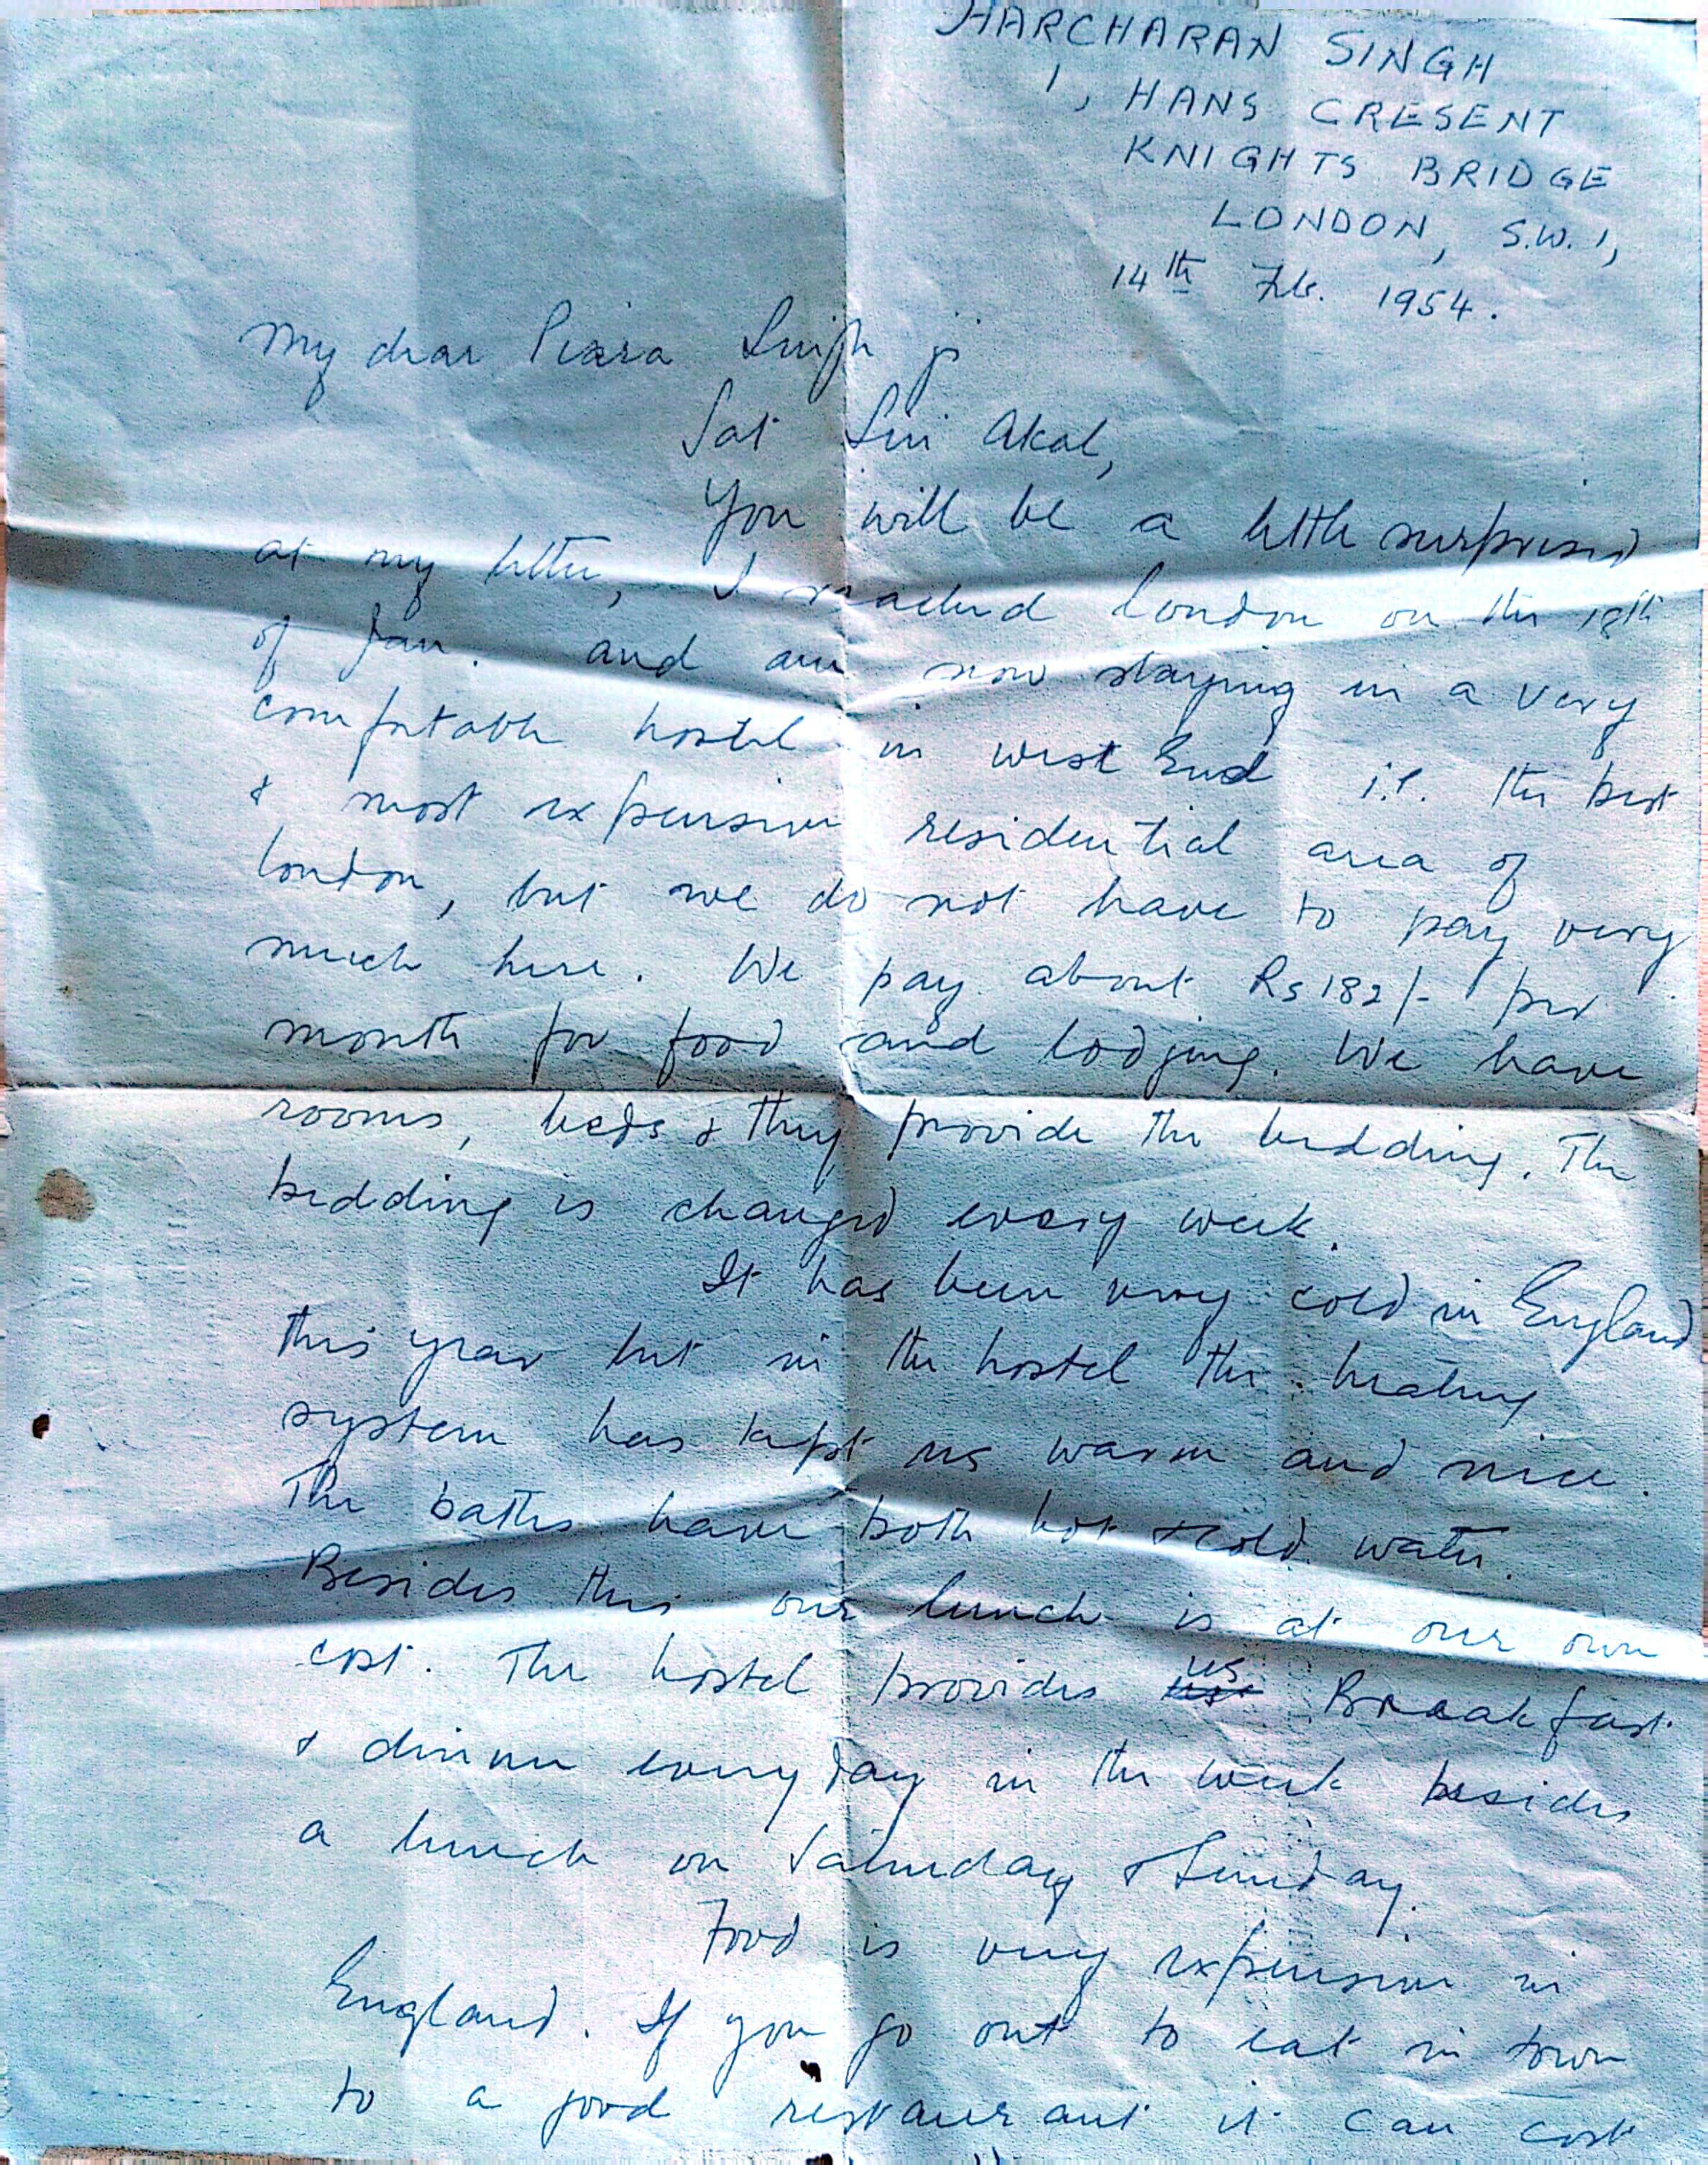 HARCHARAN SINGH
1, HANS CRESENT
KNIGHTS BRIDGE
LONDON, S.W.1,
14th Feb. 1954.
My dear Piara Singh ji
Sat Siri Akal,
You will be a little surprised
at my letter, I reached London on the 18th
of Jan. and am now staying in a very
comfortable hostel in west End i.e. the best
& most expensive residential area of
London, but we do not have to pay very
much here. We pay about Rs 182/- per
month for food and lodging. We have
rooms, beds & they provide the bedding. The
bedding is changed every week.
It has been very cold in England
this year but in the hostel the heating
system has kept us warm and nice.
The baths have both hot & cold water.
Besides this our lunch is at our own
cost. The hostel provides us Breakfast
& dinner every day in the week besides
a lunch on Saturday & Sunday.
Food is very expensive in
England. If you go out to eat in town
to a good restaurant it can cost